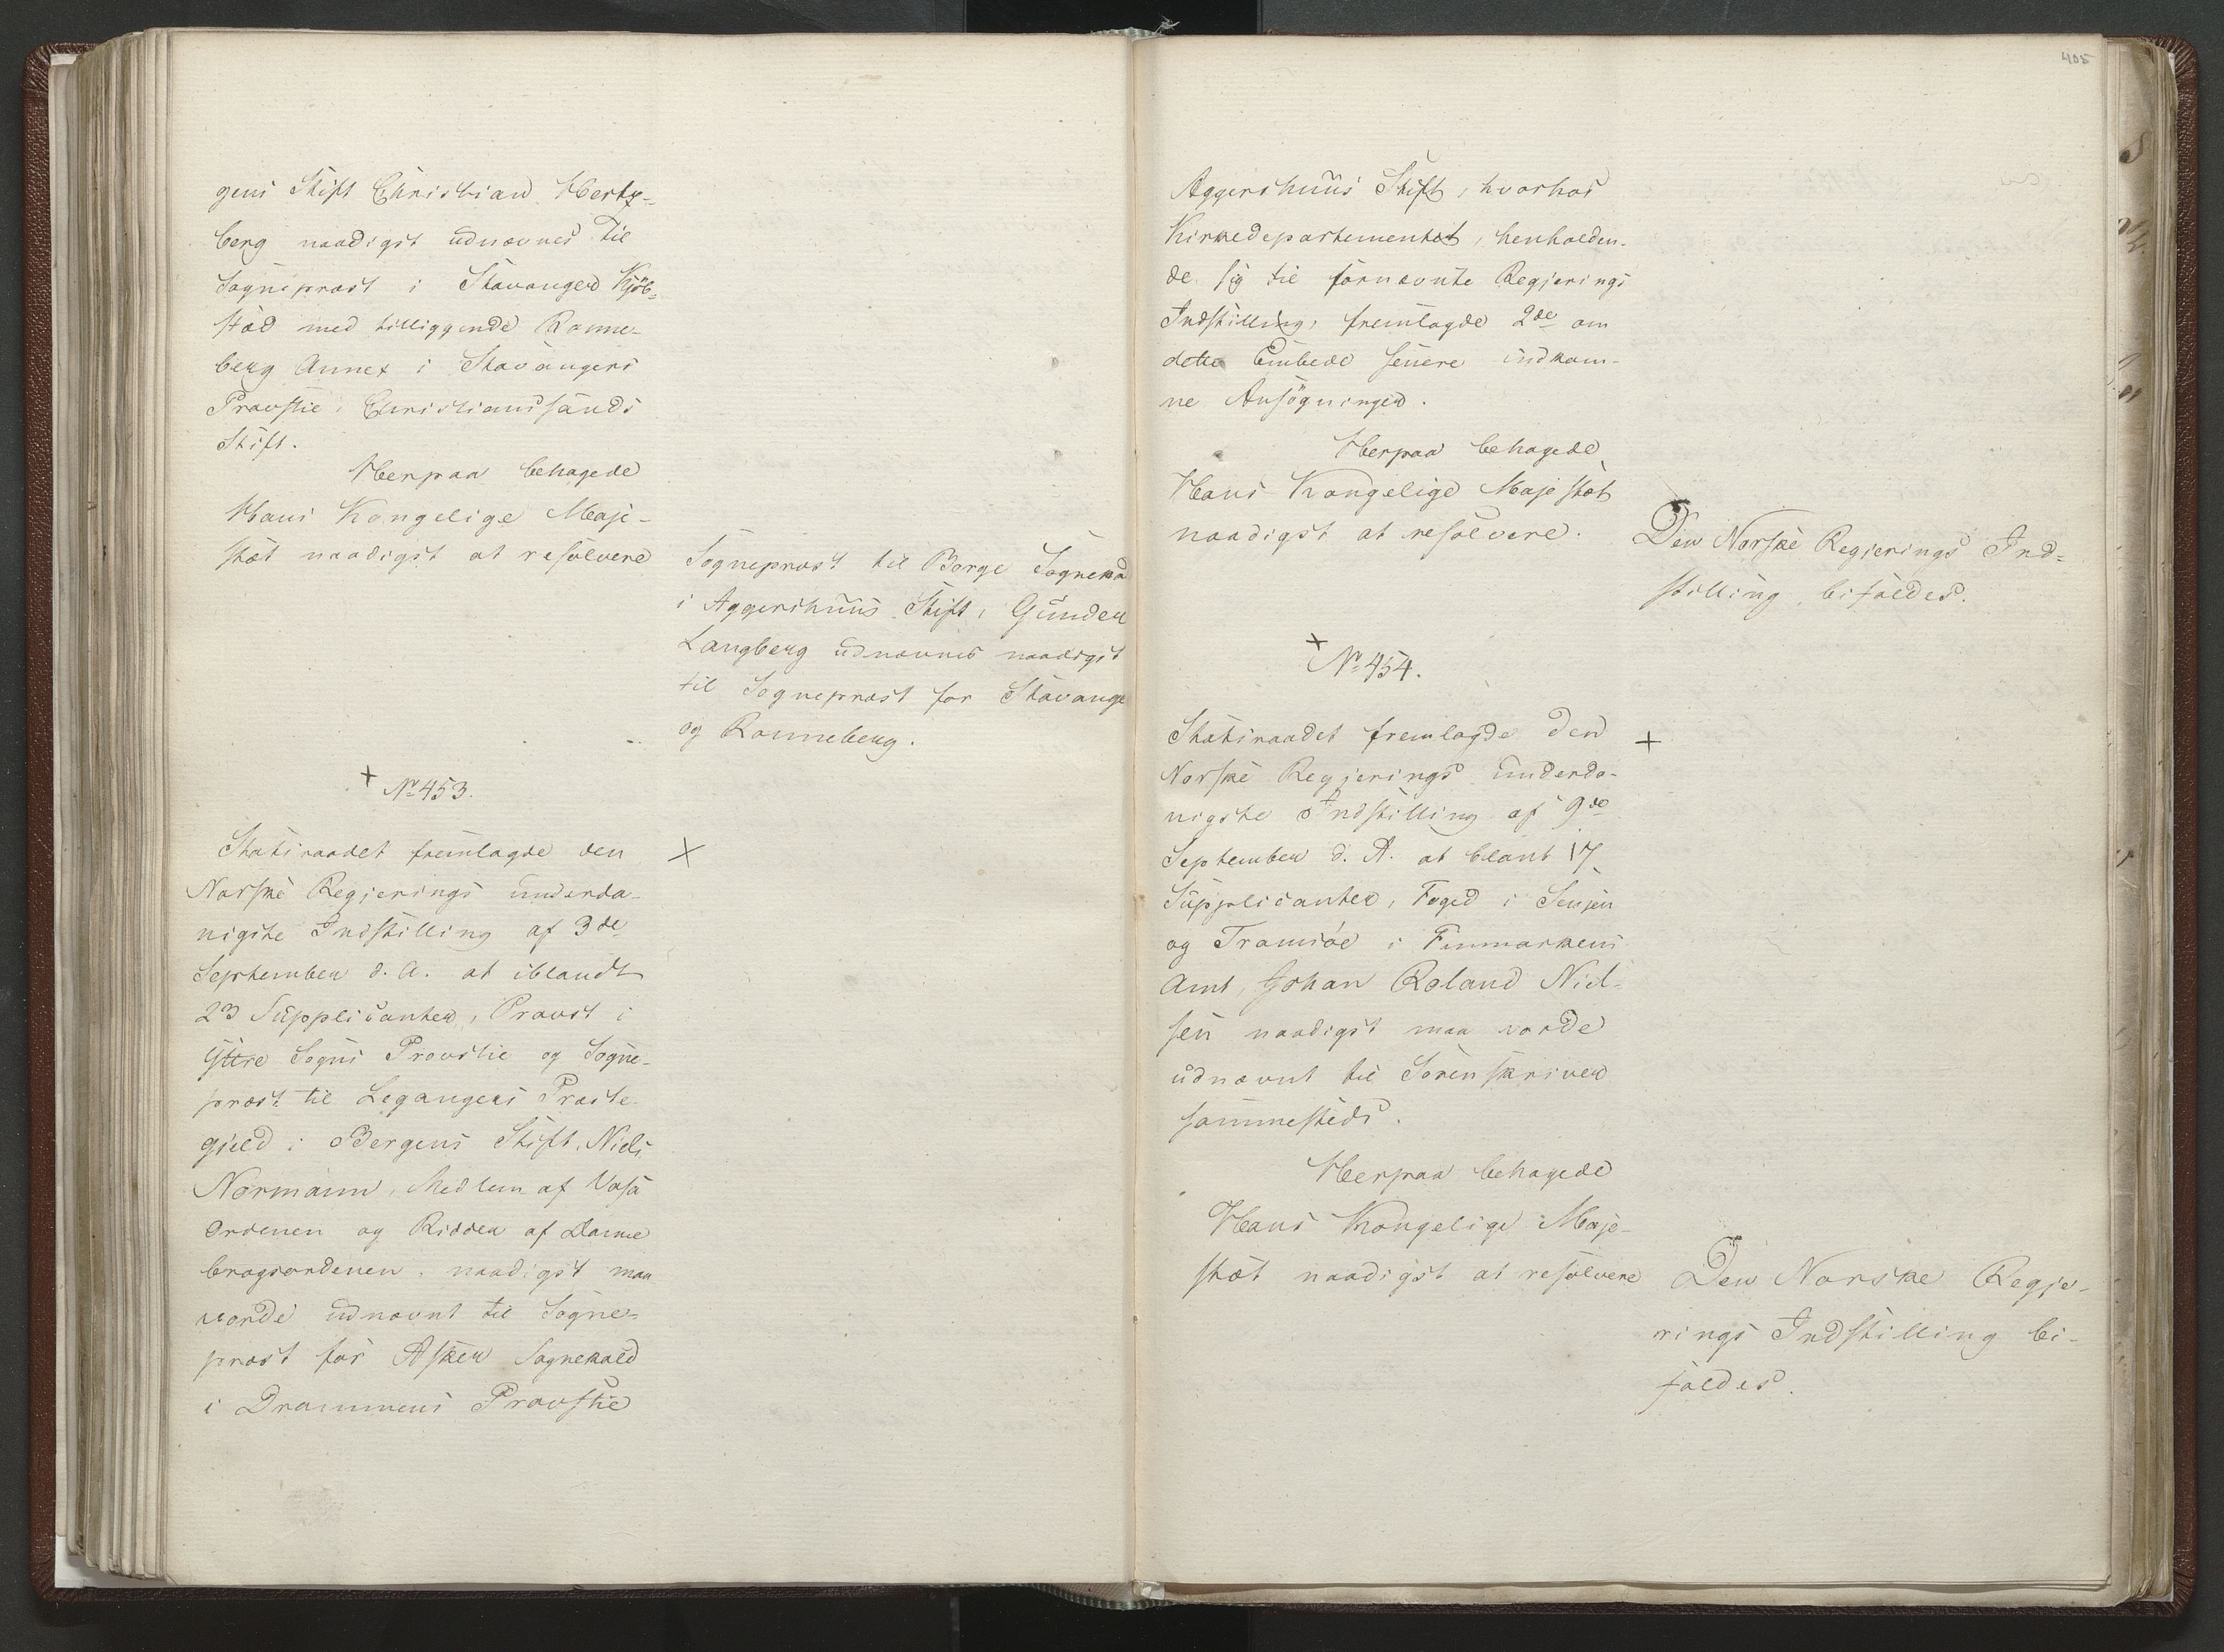 gens Stift Christian Hertz-
berg naadigst udnævnes til
Sognepræst i Stavanger Kjöb-
stæd med tilliggende Ronne-
berg Annex i Stavangers
Provstie i Christiansands
Stift.
Herpaa behagede
Hans Kongelige Maje-
stæt naadigst at resolvere
Sognepræst til Borge Sognekald
i Aggershuus Stift, Gunder
Langberg udnævnes naadigst
til Sognepræst for Stavanger
og Ronneberg.
+ No 453.
Statsraadet fremlagde den +
Norske Regjerings underda-
nigste Indstilling af 3de
September d. A. at iblandt
23 Supplicanter, Provst i
Yttre Sogns Provstie og Sogne-
præst til Legangers Præste-
gjeld i Bergens Stift, Niels
Normann, Medlem af Vasa
Ordenen og Ridder af Danne
brogsordenen, naadigst maa
vorde udnævnt til Sogne-
præst for Asker Sognekald
i Drammens Provstie
405
Aggershuus Stift, hvorhos
Kirkedepartementet, henholden-
de sig til fornævnte Regjerings
Indstilling, fremlagde 2de om
dette Embede senere indkom-
ne Ansögninger.
Herpaa behagede
Hans Kongelige Majestæt
naadigst at resolvere.
Den Norske Regjerings Ind-
stilling bifaldes.
+
No 454.
Statsraadet fremlagde den +
Norske Regjerings underda-
nigste Indstilling af 9de
September d. A. at blant 17
Supplicanter, Foged i Senjen
og Tromsöe i Finmarkens
Amt, Johan Roland Niel-
sen naadigst maa vorde
udnævnt til Sorenskriver
sammesteds.
Herpaa behagede
Hans Kongelige Maje-
stæt naadigst at resolvere
Den Norske Regje-
rings Indstilling bi-
faldes.